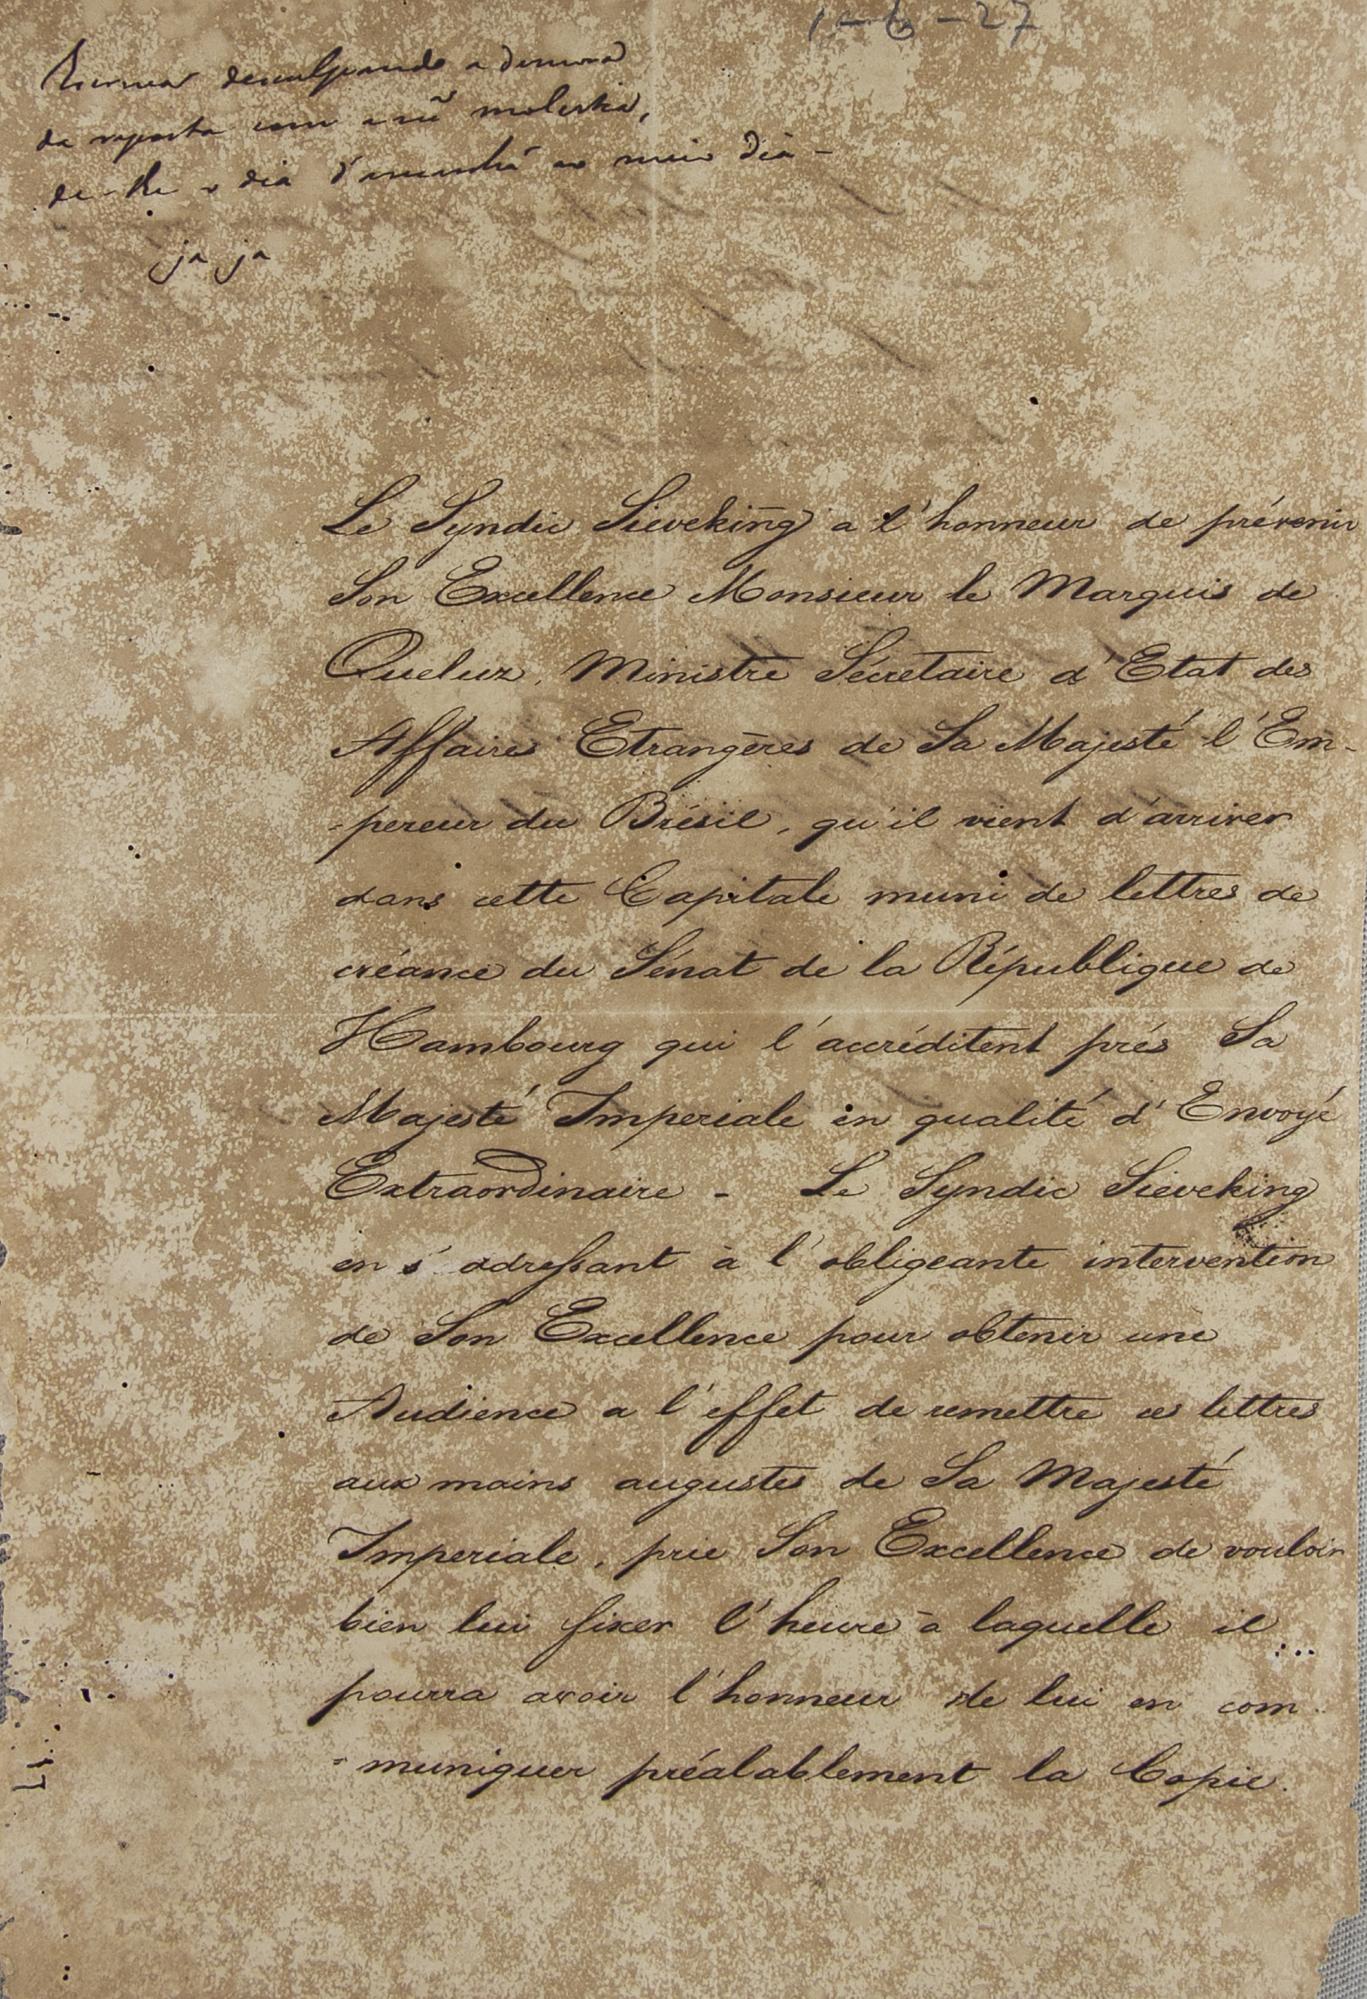 1-6-27
desculpando a demora
da resposta com a molestia,
de-lhe o dia d'amanhã ao meio dia -
ja ja
Le Syndic Sieveking a l'honneur de prévenir
Son Excellence Monsieur le Marquis de
Queluz, Ministre Sécretaire d'Etat des
Affaires Etrangères de Sa Majesté l'Em-
-pereur du Brésil, qu'il vient d'arriver
dans cette Capitale muni de lettres de
créance du Sénat de la République de
Hambourg qui l'accréditent près Sa
Majesté Imperiale en qualité d'Envoyé
Extraordinaire - Le Syndic Sieveking
en s'adressant à l'obligeante intervention
de Son Excellence pour obtenir une
Audience a l'effet de remettre ces lettres
aux mains augustes de Sa Majesté
Imperiale, prie Son Excellence de vouloir
bien lui fixer l'heure à laquelle il
pourra avoir l'honneur de lui en com
-muniquer préalablement la Copie.